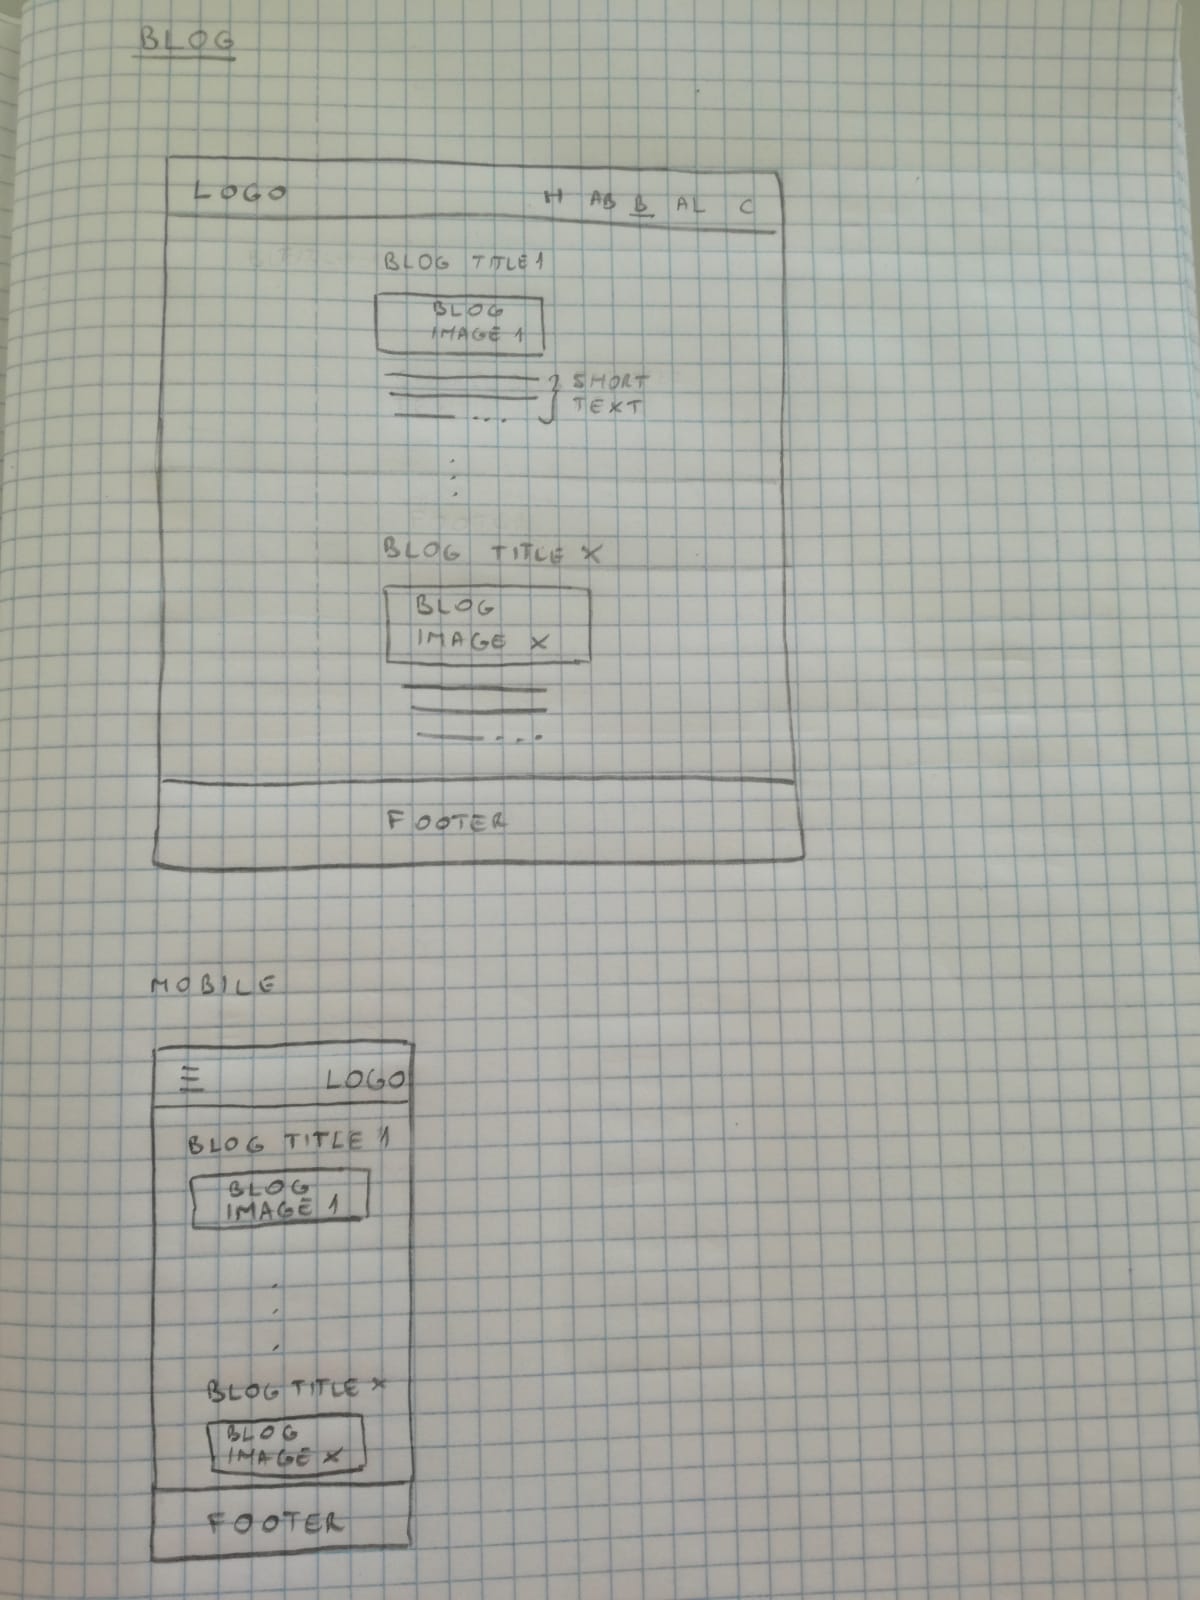 BLOG
LOGO H AB B AL C
BLOG TITLE 1
BLOG
IMAGE 1
SHORT
TEXT
BLOG TITLE X
BLOG
IMAGE X
FOOTER
MOBILE
LOGO
BLOG TITLE 1
BLOG
IMAGE 1
BLOG TITLE X
BLOG
IMAGE X
FOOTER